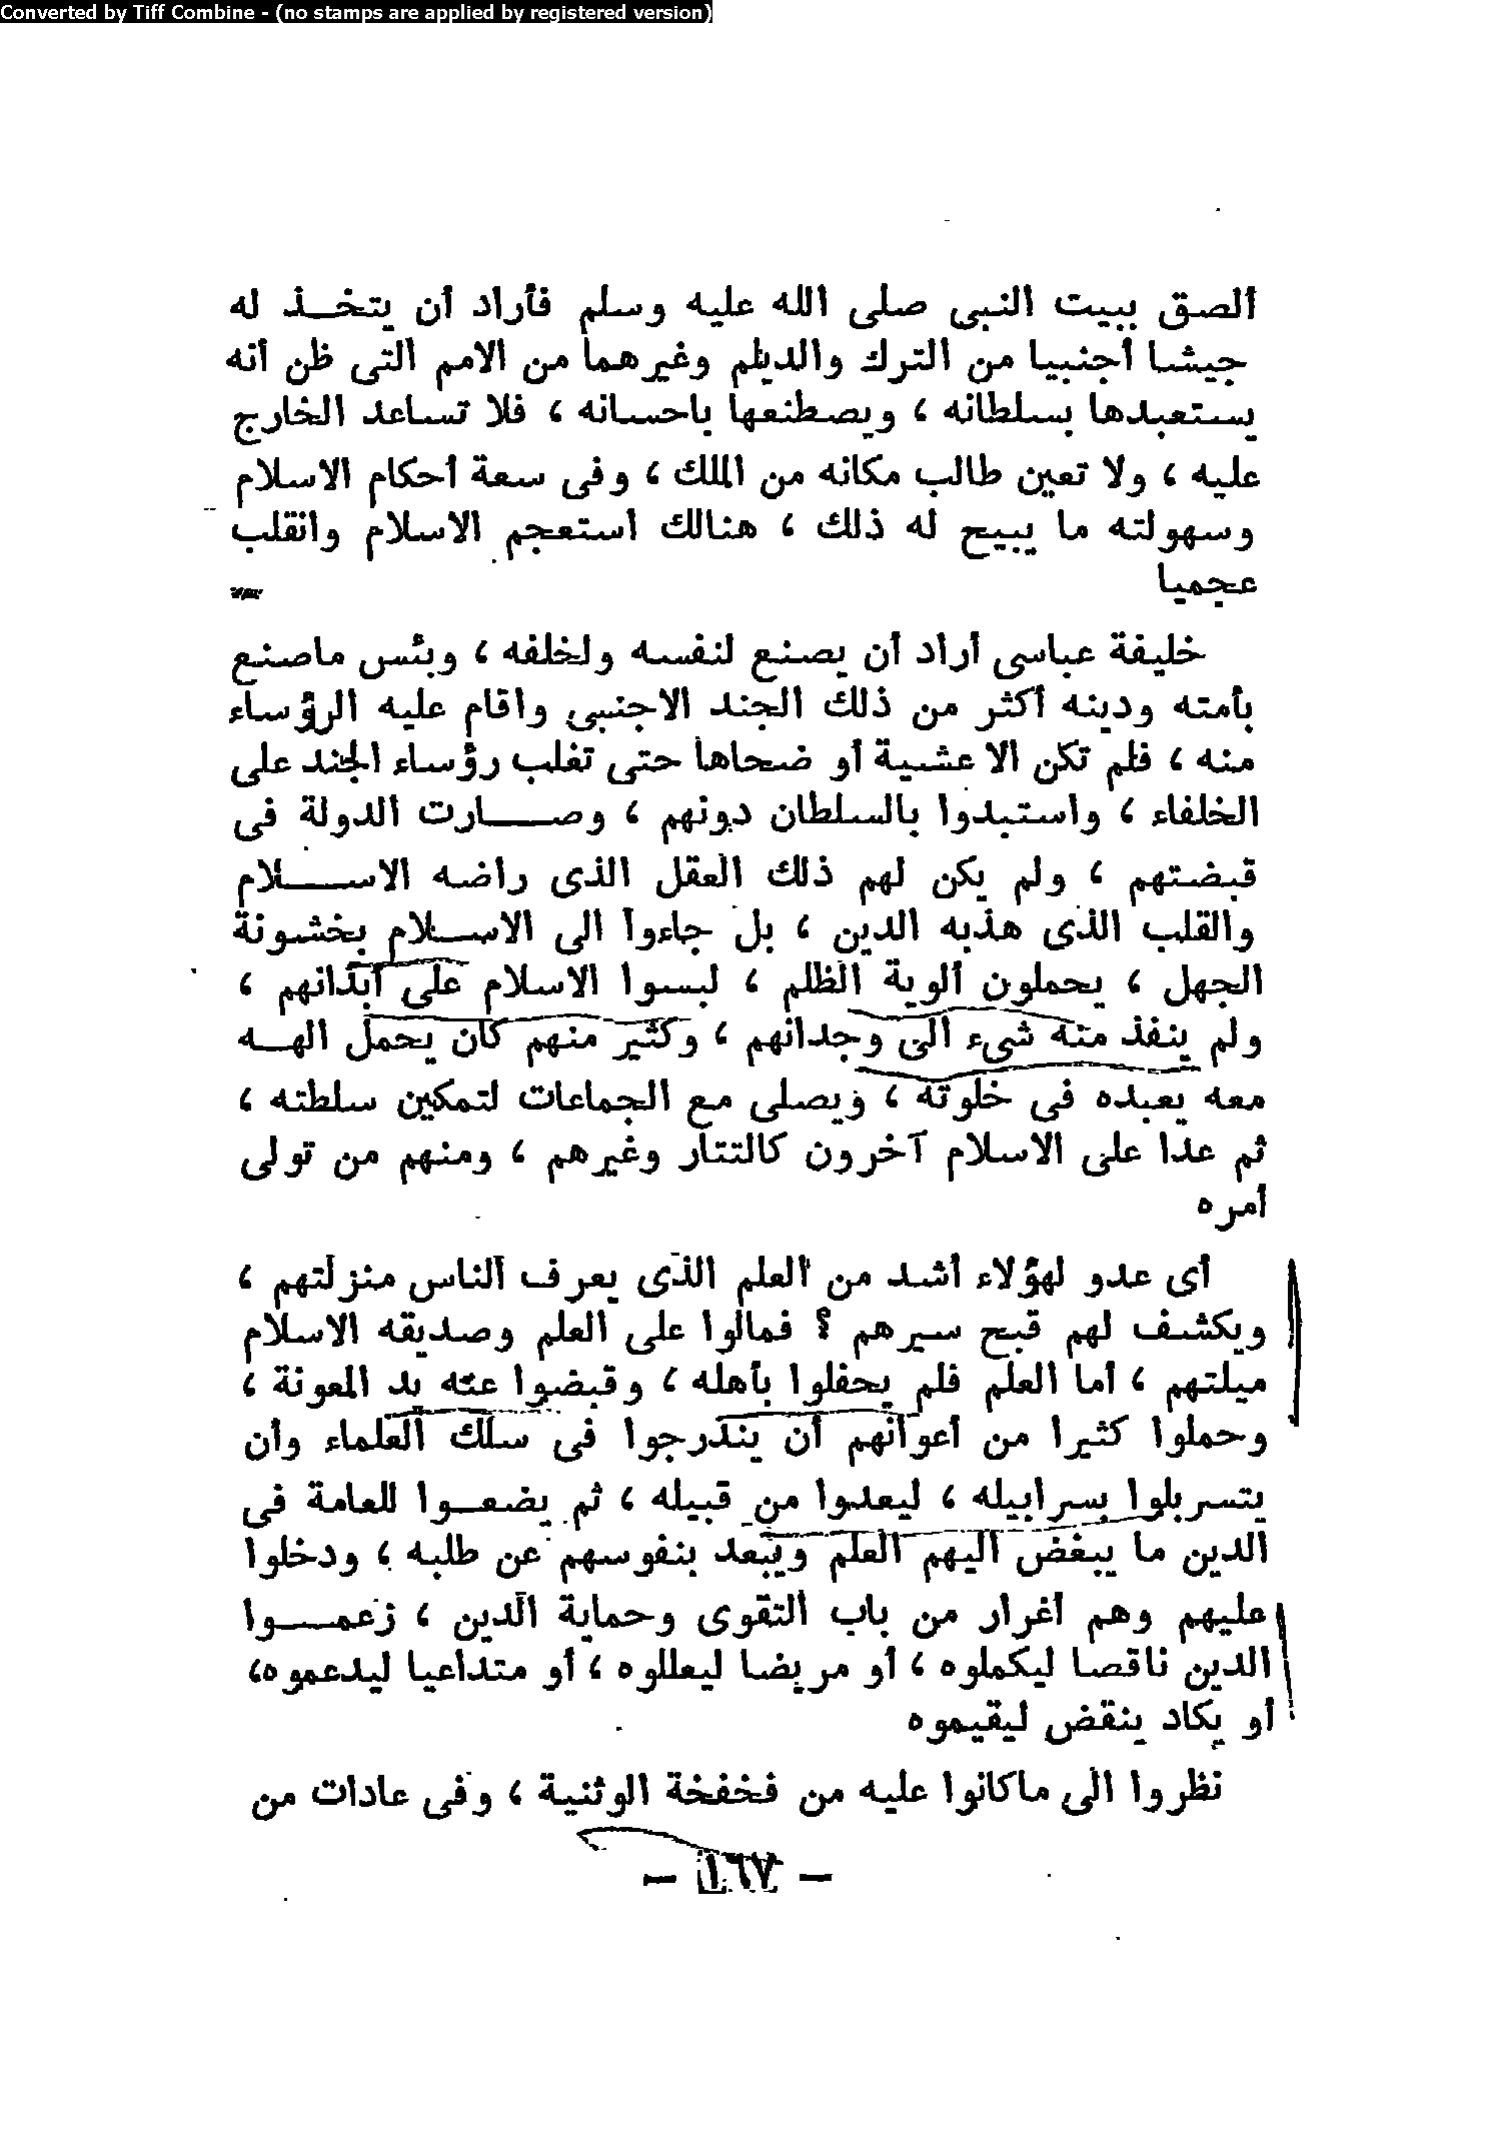 Converted by Tiff Combine - (no stamps are applied by registered version)
ألصق ببيت النبى صلى الله عليه وسلم فأراد أن يتخذ له
جيشا أجنبيا من الترك والديلم وغيرهما من الامم التى ظن أنه
يستعبدها بسلطانه ، ويصطنعها باحسانه ، فلا تساعد الخارج
عليه ، ولا تعين طالب مكانه من الملك ، وفى سعة أحكام الاسلام
وسهولته ما يبيح له ذلك ، هنالك استعجم الاسلام وانقلب
عجميا
خليفة عباسى أراد أن يصنع لنفسه ولخلفه ، وبئس ماصنع
بأمته ودينه أكثر من ذلك الجند الاجنبى واقام عليه الرؤساء
منه ، فلم تكن الا عشية أو ضحاها حتى تغلب رؤساء الجند على
الخلفاء ، واستبدوا بالسلطان دونهم ، وصارت الدولة فى
قبضتهم ، ولم يكن لهم ذلك العقل الذى راضه الاسلام
والقلب الذى هذبه الدين ، بل جاءوا الى الاسلام بخشونة
الجهل ، يحملون ألوية الظلم ، لبسوا الاسلام على أبدانهم ،
ولم ينفذ منه شىء الى وجدانهم ، وكثير منهم كان يحمل الهه
معه يعبده فى خلوته ، ويصلى مع الجماعات لتمكين سلطته ،
ثم عدا على الاسلام آخرون كالتتار وغيرهم ، ومنهم من تولى
أمره
أى عدو لهؤلاء أشد من العلم الذى يعرف الناس منزلتهم ،
ويكشف لهم قبح سيرهم ؟ فمالوا على العلم وصديقه الاسلام
ميلتهم ، أما العلم فلم يحفلوا بأهله ، وقبضوا عنه يد المعونة ،
وحملوا كثيرا من أعوانهم أن يندرجوا فى سلك العلماء وأن
يتسربلوا بسرابيله ، ليعدوا من قبيله ، ثم يضعوا للعامة فى
الدين ما يبغض اليهم العلم ويبعد بنفوسهم عن طلبه ، ودخلوا
عليهم وهم أغرار من باب التقوى وحماية الدين ، زعموا
الدين ناقصا ليكملوه ، أو مريضا ليعللوه ، أو متداعيا ليدعموه،
أو يكاد ينقض ليقيموه
نظروا الى ماكانوا عليه من فخفخة الوثنية ، وفى عادات من
— ١٦٧ —